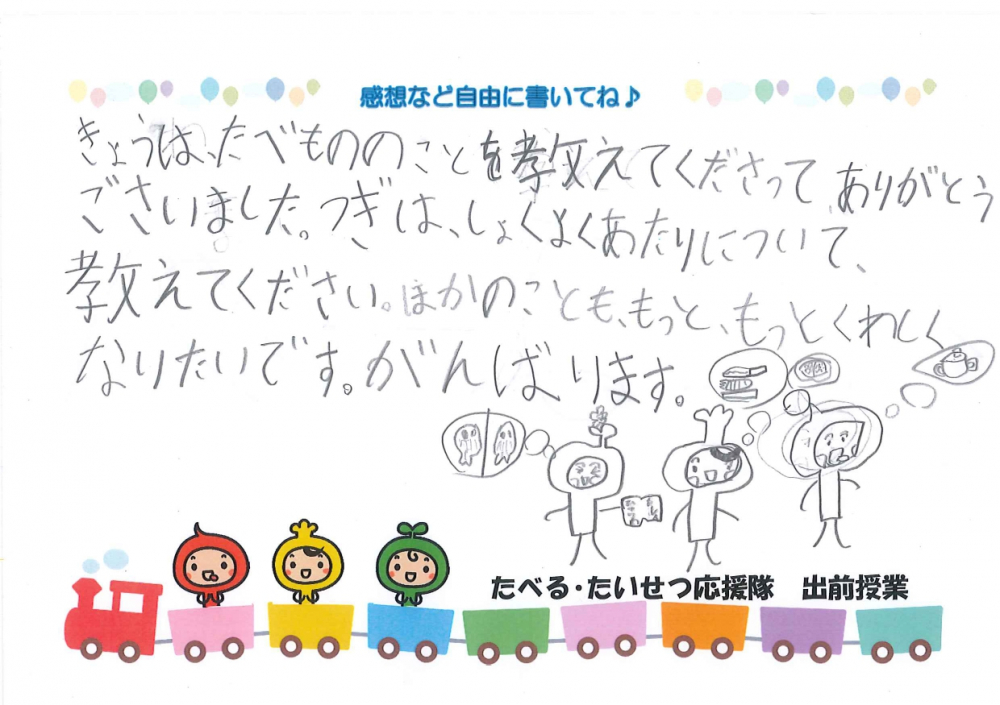 感想など自由に書いてね♪
きょうは、たべもののことを教えてくださって、ありがとう
ございました。つぎは、しょくよくあたりについて、
教えてください。ほかのことも、もっと、もっとくわしく
なりたいです。がんばります。
たべる・たいせつ応援隊　出前授業